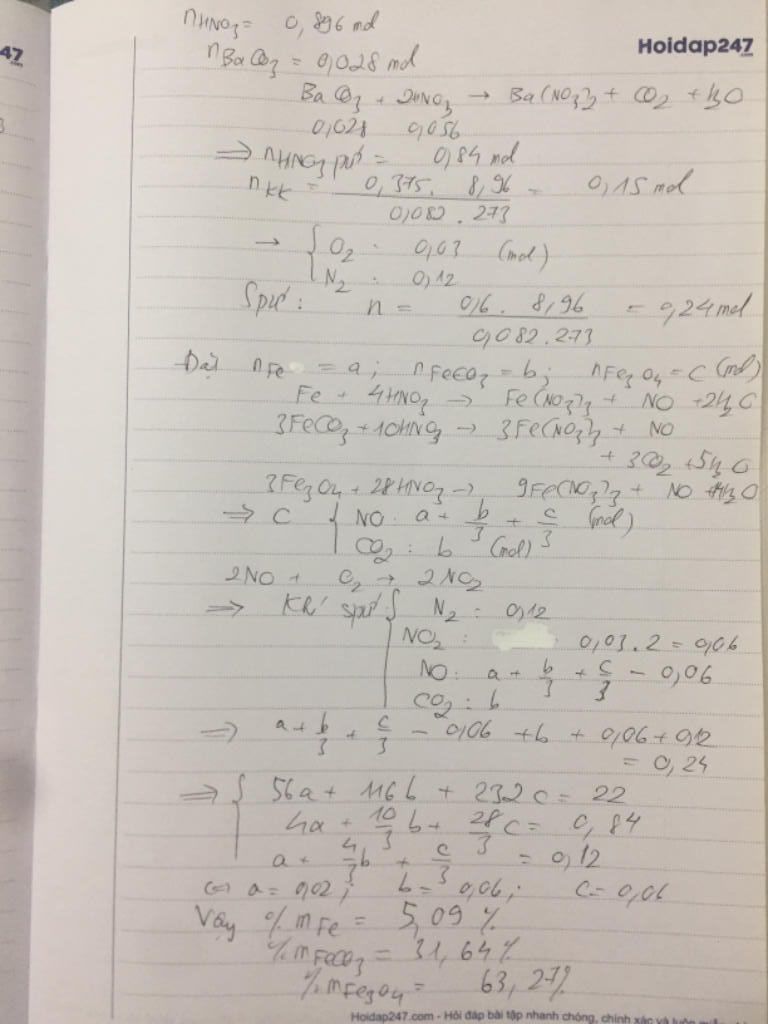 47
.com
3
Hoidap247
.com
nHNO3 = 0,896 mol
nBaCO3 = 0,028 mol
BaCO3 + 2HNO3 → Ba(NO3)2 + CO2 + H2O
0,028 0,056
⇒ nHNO3 pứ = 0,84 mol
nKK = 0,375. 8,96 / 0,082 . 273 = 0,15 mol
→ { O2 : 0,03 (mol)
N2 : 0,12
Spứ : n = 0,6 . 8,96 / 0,082 . 273 = 0,24 mol
Đặt nFe = a ; nFeCO3 = b ; nFe3O4 = c (mol)
Fe + 4HNO3 → Fe(NO3)3 + NO + 2H2O
3FeCO3 + 10HNO3 → 3Fe(NO3)3 + NO
+ 3CO2 + 5H2O
3Fe3O4 + 28HNO3 → 9Fe(NO3)3 + NO + H2O
⇒ C { NO : a + b/3 + c/3 (mol)
CO2 : b (mol)
2NO + O2 → 2NO2
⇒ Khí spứ { N2 : 0,12
NO2 : 0,03 . 2 = 0,06
NO : a + b/3 + c/3 - 0,06
CO2 : b
⇒ a + b/3 + c/3 - 0,06 + b + 0,06 + 0,12
= 0,24
⇒ { 56a + 116b + 232c = 22
4a + 10/3 b + 28/3 c = 0,84
a + 4/3 b + c/3 = 0,12
⇔ a = 0,02 ; b = 0,06 ; c = 0,06
Vậy % mFe = 5,09 %
% mFeCO3 = 31,64 %
% mFe3O4 = 63,27%
Hoidap247.com - Hỏi đáp bài tập nhanh chóng, chính xác và luôn